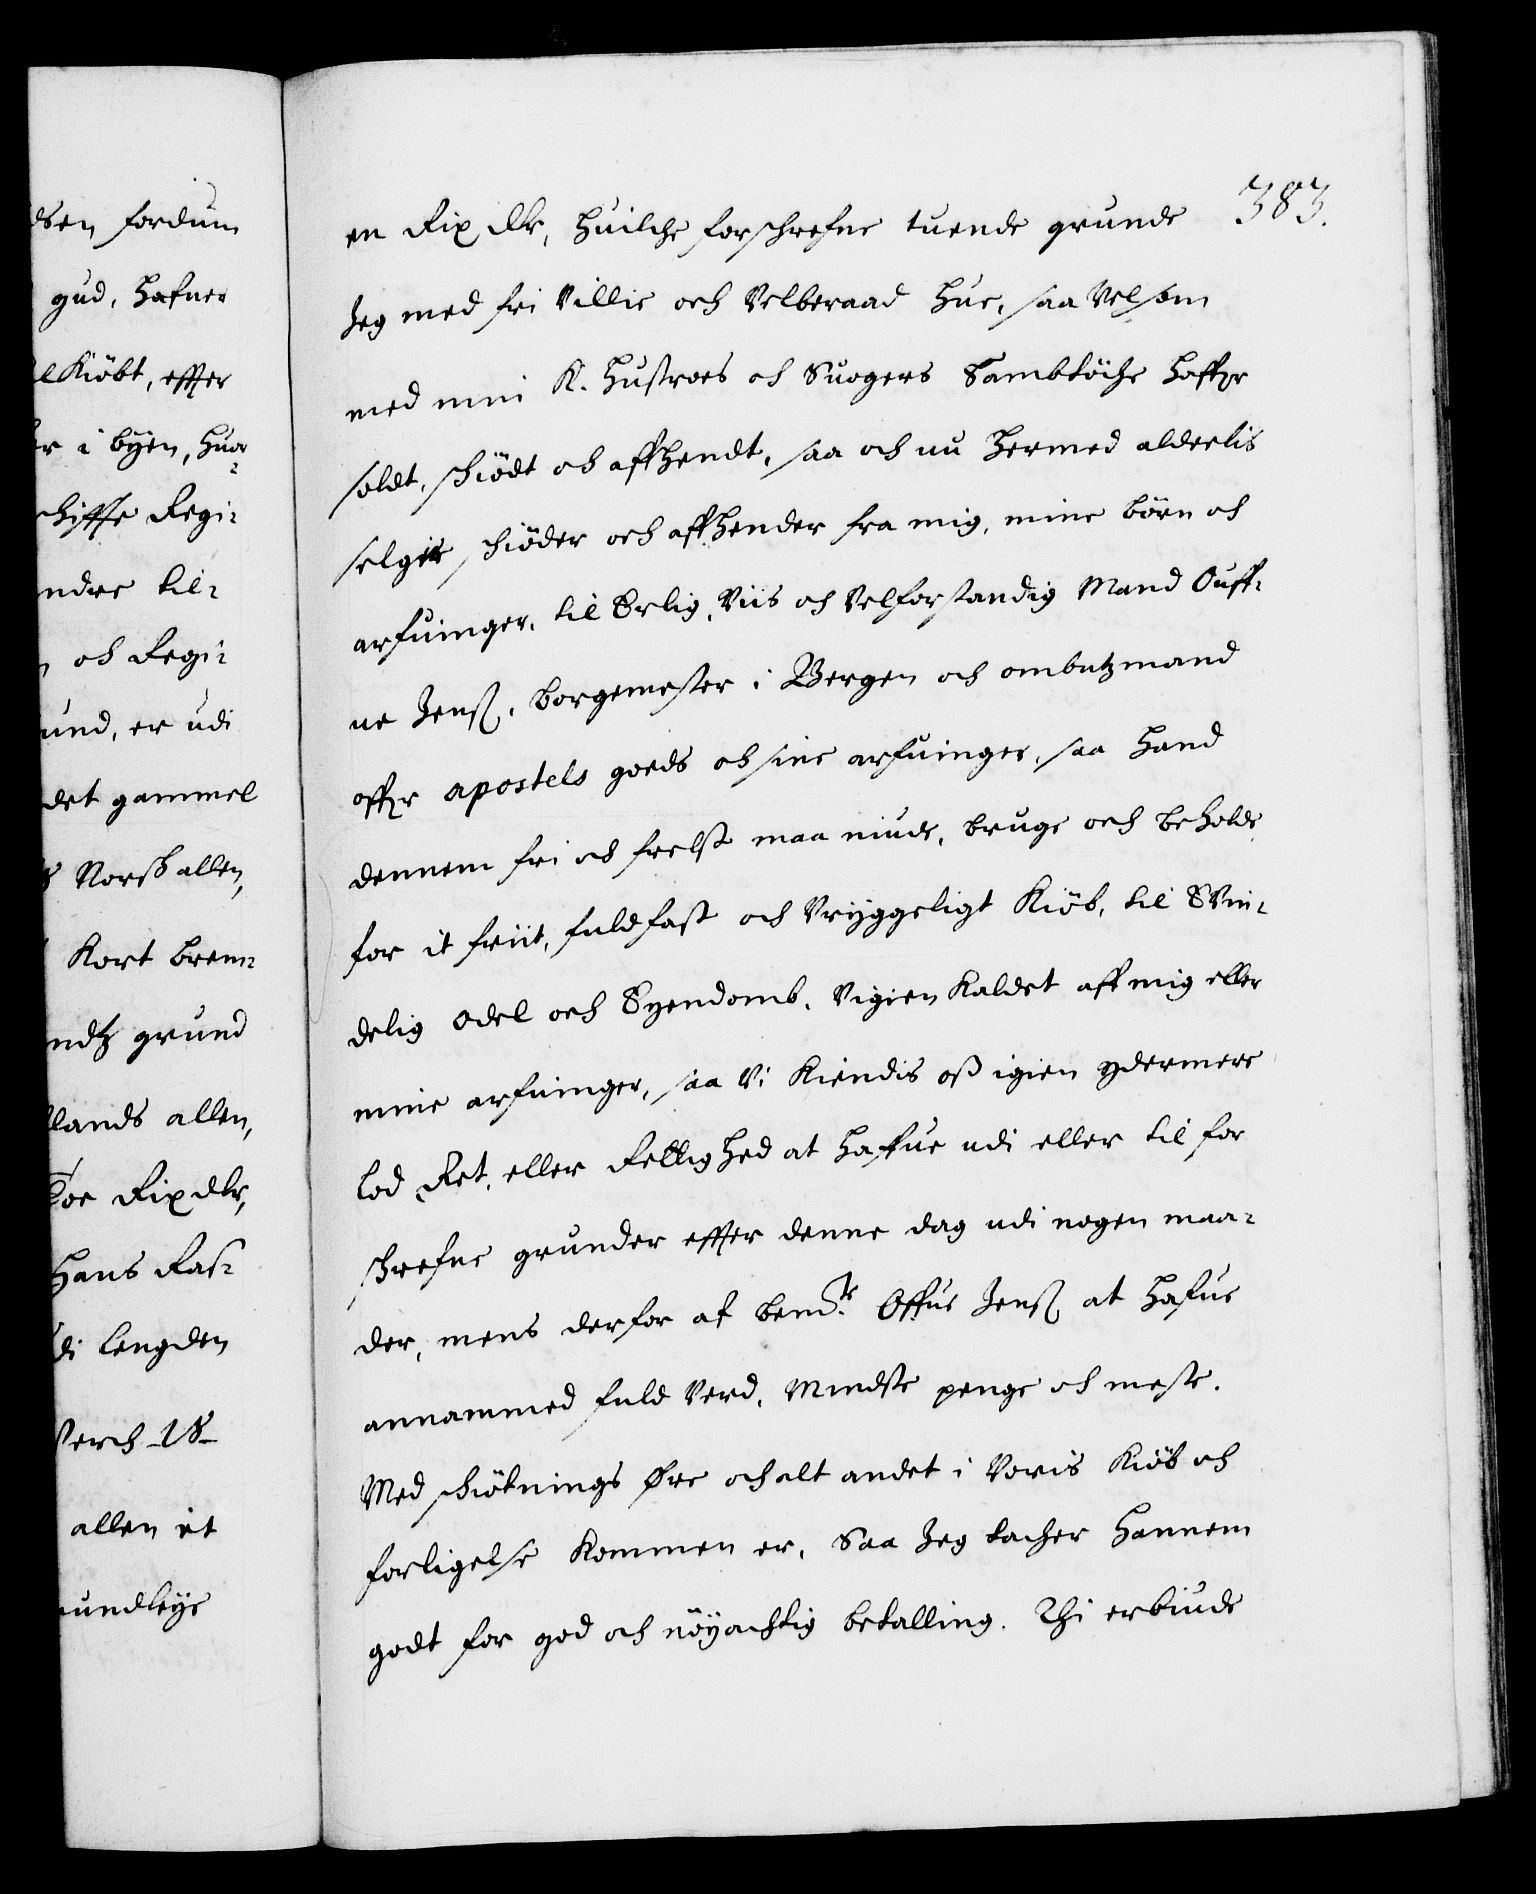 dsen fordum
gud, hafuer
Kiöbt, effter
er i byen, huor-
chiffte Regi-
ndre til-
och Regi-
und, er udi
det gammel
Norsk allen,
Kort brem-
ndtz grund
llands allen,
Toe Rixdlr,
Hans Ras-
di lengden
Verch 18
allen it
undleye
383.
en Rix dlr, huilche forschrefne tuende grunde
Jeg med fri Villie och Velberaad hue, saa Velsom
med min K. hustroes och Suogers Sambtöche haffr
soldt, schiödt och affhendt, saa och nu hermed alderlis
selger schiöder och affhender fra mig, mine börn och
arfuinger, til Erlig, Viis och Velforstandig Mand Ouff-
ue Jenß, borgemester i Bergen och ombutzmand
offr apostels goeds och sine arfuinger, saa hand
dennem fri och frelst maa niude, bruge och beholde
for it friit, fuldfast och Vryggeligt Kiöb, til Evin-
delig odel och Eyendomb, Vigien Kaldet aff mig eller
mine arfuinger, saa Vi Kiendis oß igien ydermere
lod Ret, eller Rettighed at hafue udi eller til for
schrefne grunder effter denne dag udi nogen maa-
der, mens derfor af bemte Offue Jenß at hafue
annammed fuld Verd, Mindste penge och meste.
Med schiötnings Øre och alt andet i Voris Kiöb och
forligelse Kommen er, Saa Jeg tacher hannem
godt for god och nöyachtig betalling. Thi erbiude